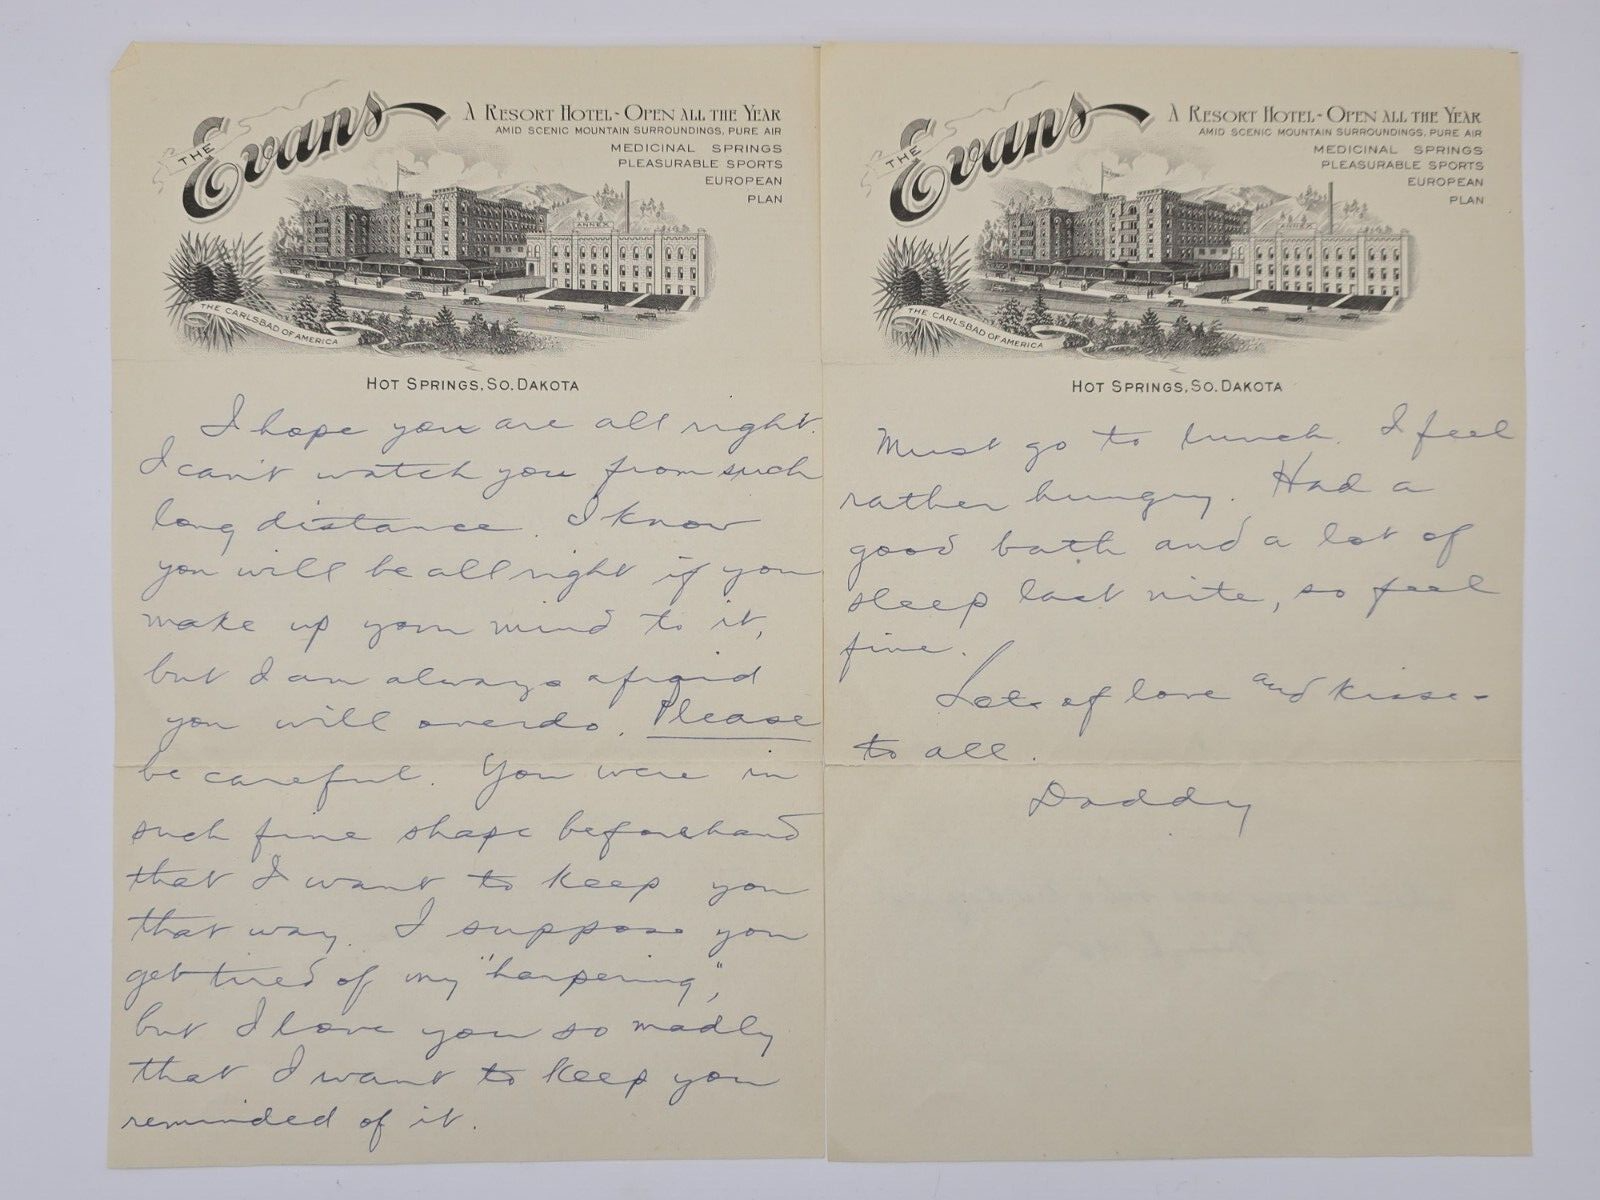 THE Evans
A RESORT HOTEL - OPEN ALL THE YEAR
AMID SCENIC MOUNTAIN SURROUNDINGS, PURE AIR
MEDICINAL SPRINGS
PLEASURABLE SPORTS
EUROPEAN
PLAN
ANNEX
THE CARLSBAD OF AMERICA
HOT SPRINGS, SO. DAKOTA
I hope you are all right.
I can't watch you from such
long distance. I know
you will be all right if you
make up your mind to it,
but I am always afraid
you will overdo. Please
be careful. You were in
such fine shape beforehand
that I want to keep you
that way. I suppose you
get tired of my "harpening",
but I love you so madly
that I want to keep you
reminded of it.
THE Evans
A RESORT HOTEL - OPEN ALL THE YEAR
AMID SCENIC MOUNTAIN SURROUNDINGS, PURE AIR
MEDICINAL SPRINGS
PLEASURABLE SPORTS
EUROPEAN
PLAN
ANNEX
THE CARLSBAD OF AMERICA
HOT SPRINGS, SO. DAKOTA
Must go to lunch. I feel
rather hungry. Had a
good bath and a lot of
sleep last nite, so feel
fine.
Lots of love and kisses
to all.
Daddy